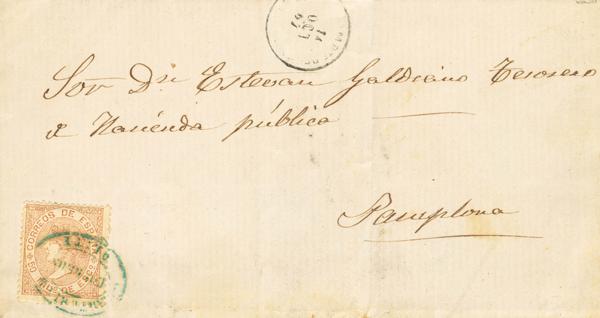 Sor Dn Esteban Galdiano Tesorero
de Hacienda pública
Pamplona
CORREOS DE ESP